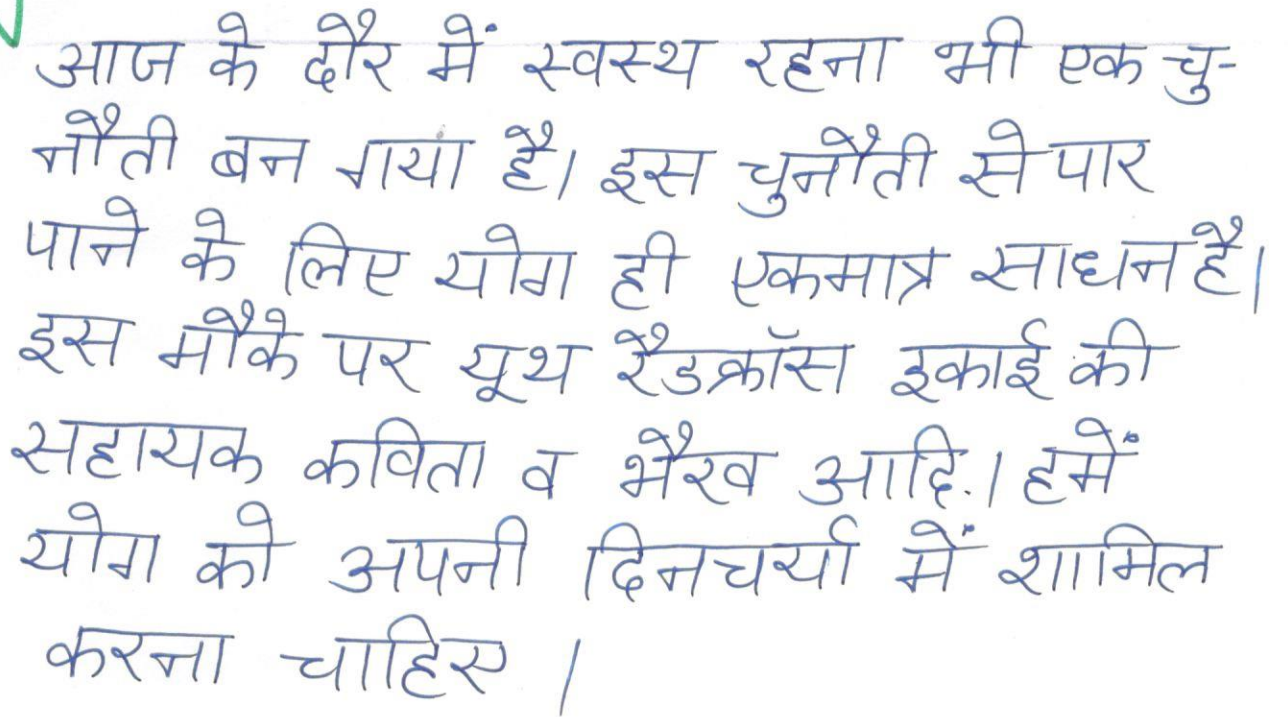 आज के दौर में स्वस्थ रहना भी एक चु-
नौती बन गया है। इस चुनौती से पार
पाने के लिए योग ही एकमात्र साधन है।
इस मौके पर यूथ रैडक्रॉस इकाई की
सहायक कविता व भैरव आदि.। हमें
योग को अपनी दिनचर्या में शामिल
करना चाहिए।